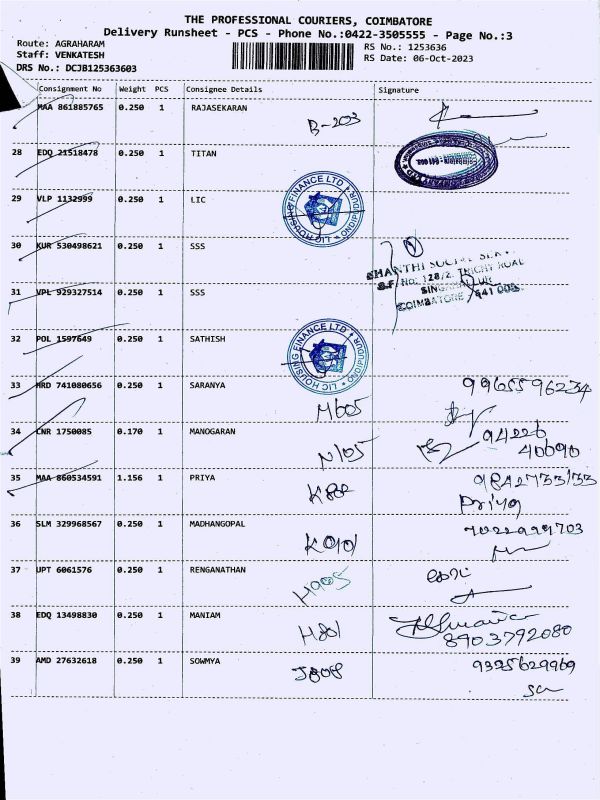 THE PROFESSIONAL COURIERS, COIMBATORE
Delivery Runsheet - PCS - Phone No.:0422-3505555 - Page No.:3
Route: AGRAHARAM
RS No.: 1253636
Staff: VENKATESH
RS Date: 06-Oct-2023
DRS No.: DCJB125363603
Consignment No Weight PCS Consignee Details Signature
MAA 861885765 0.250 1 RAJASEKARAN B-203
28 EDQ 21518478 0.250 1 TITAN
29 VLP 1132999 0.250 1 LIC
LIC HOUSING FINANCE LTD
30 KUR 530498621 0.250 1 SSS
SHANTHI SOCIAL
S.F No: 128/2, TRICHY ROAD
31 VPL 929327514 0.250 1 SSS
COIMBATORE 641 005.
32 POL 1597649 0.250 1 SATHISH
LIC HOUSING FINANCE LTD
33 HRD 741080656 0.250 1 SARANYA M605 9965596234
34 CNR 1750085 0.170 1 MANOGARAN N105 94226
40090
35 MAA 860534591 1.156 1 PRIYA K802 9842733133
Priya
36 SLM 329968567 0.250 1 MADHANGOPAL K901
37 UPT 6061576 0.250 1 RENGANATHAN H905
38 EDQ 13498830 0.250 1 MANIAM H801
8903792080
39 AMD 27632618 0.250 1 SOWMYA J808